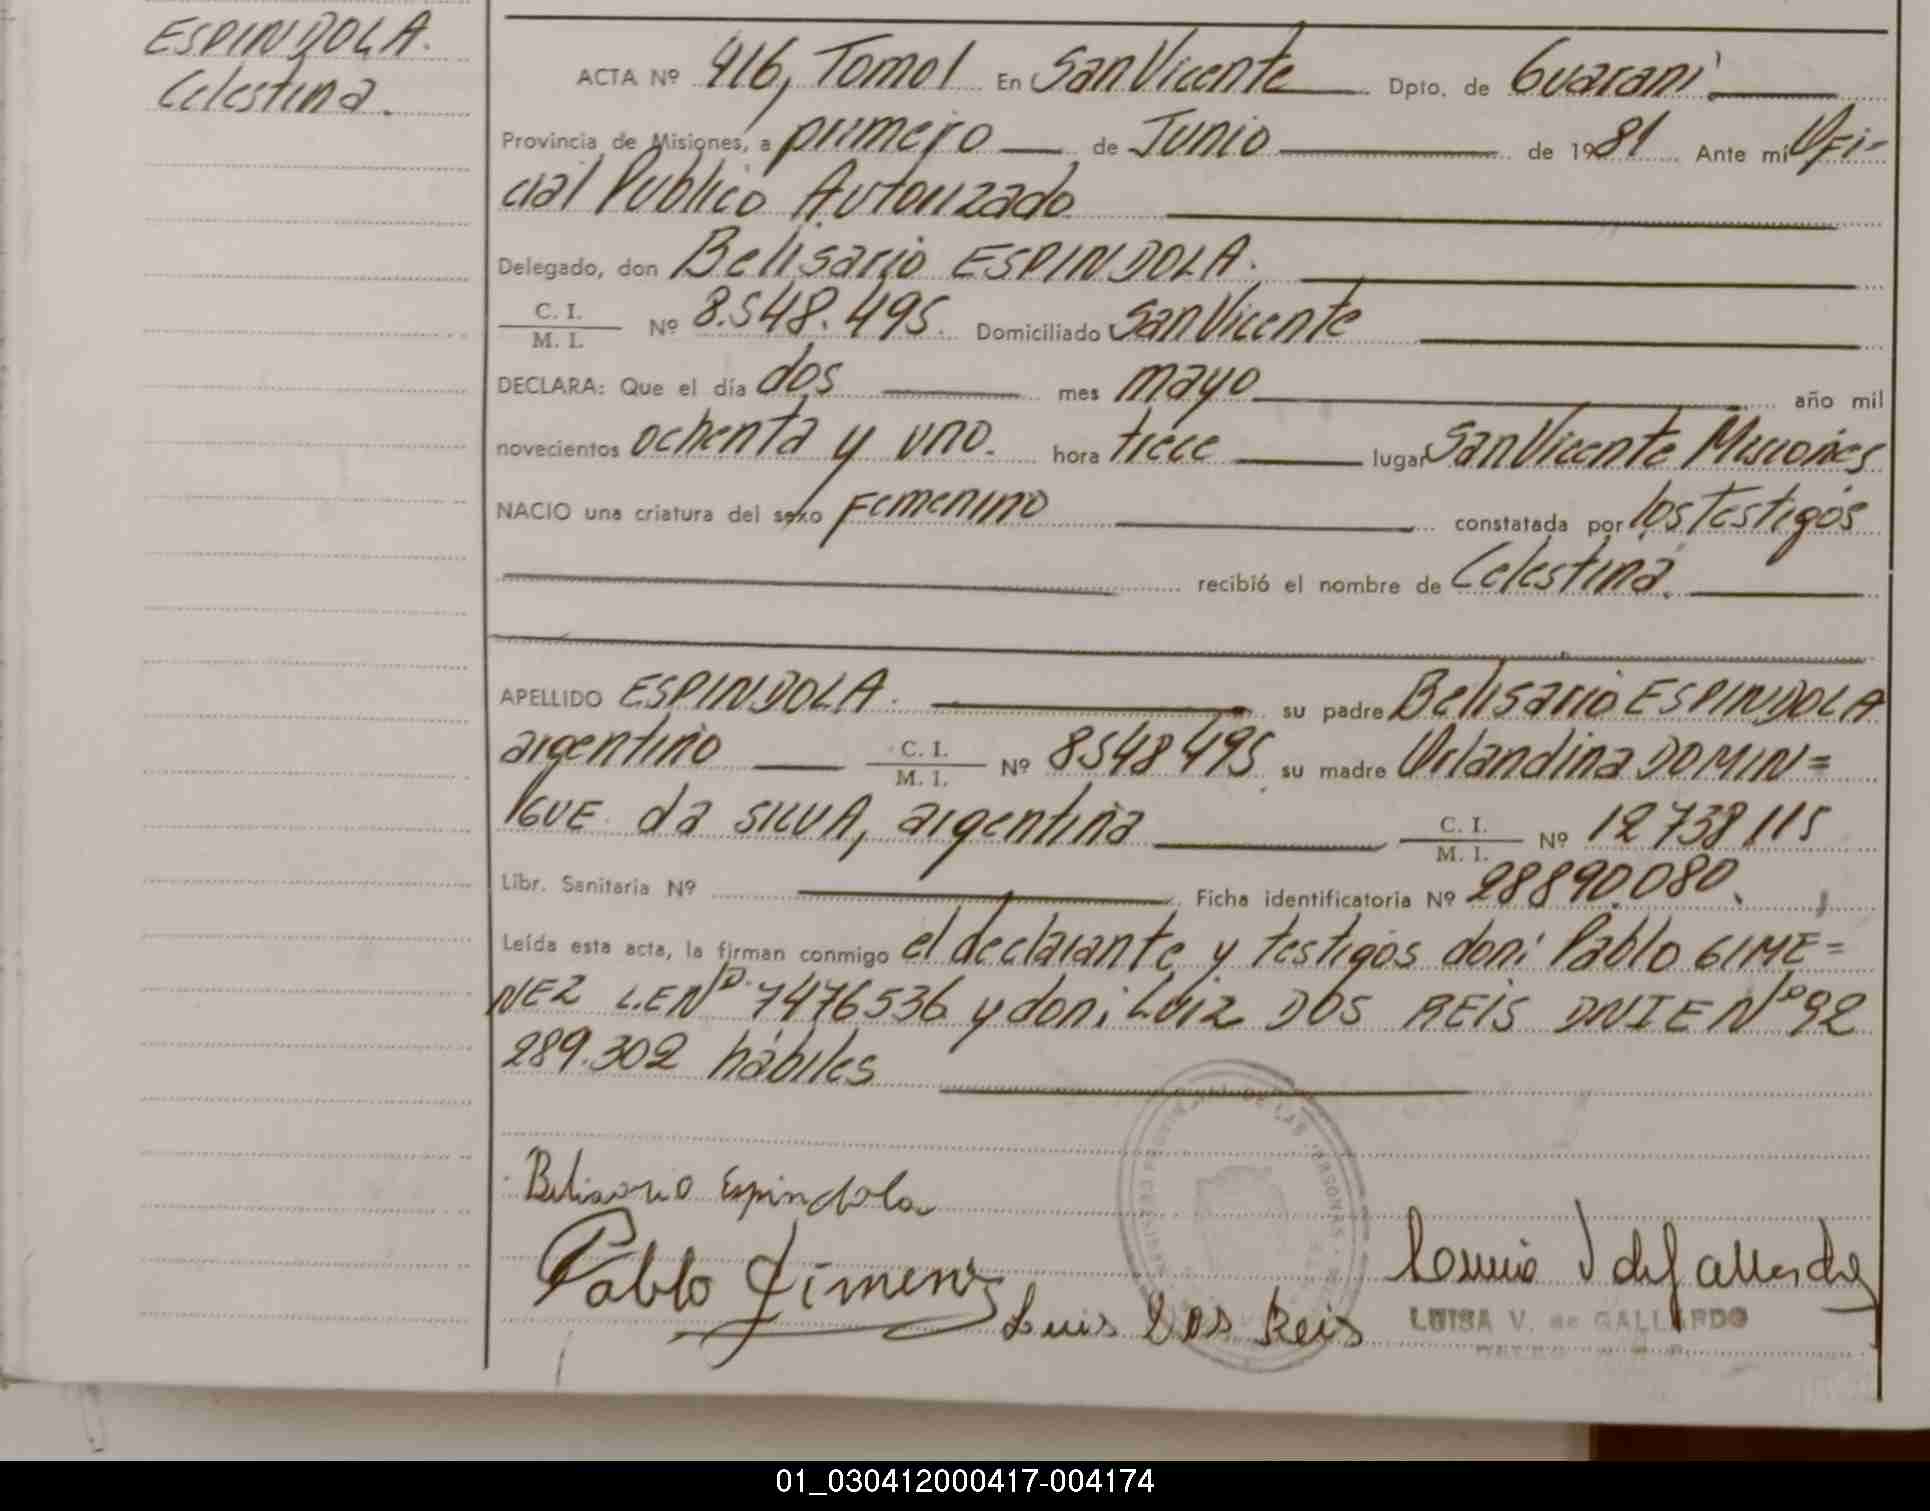 ESPINDOLA.
Celestina.
ACTA Nº 416, Tomo I En San Vicente Dpto. de Guaraní
Provincia de Misiones, a primero de Junio de 1981 Ante mí Ofi-
cial Publico Autorizado
Delegado, don Belisario ESPINDOLA.
C. I.
M. I. Nº 8.548.495. Domiciliado San Vicente
DECLARA: Que el día dos mes mayo año mil
novecientos ochenta y uno. hora trece lugar San Vicente Misiones
NACIO una criatura del sexo Femenino constatada por los Testigos
recibió el nombre de Celestina.
APELLIDO ESPINDOLA. su padre Belisario ESPINDOLA
argentino C. I. M. I. Nº 8548495 su madre Orlandina DOMIN=
IGUE da SILVA, argentina C. I. M. I. Nº 12738115
Libr. Sanitaria Nº Ficha identificatoria Nº 28890.080.
Leída esta acta, la firman conmigo el declarante y testigos don: Pablo GIME=
NEZ L.E Nº 7476536 y don: Luiz DOS REIS DNIE Nº 92
289.302 hábiles
Belisario Espindola
Pablo Jimenez
Luis Dos Reis
LUISA V. de GALLARDO
01_030412000417-004174